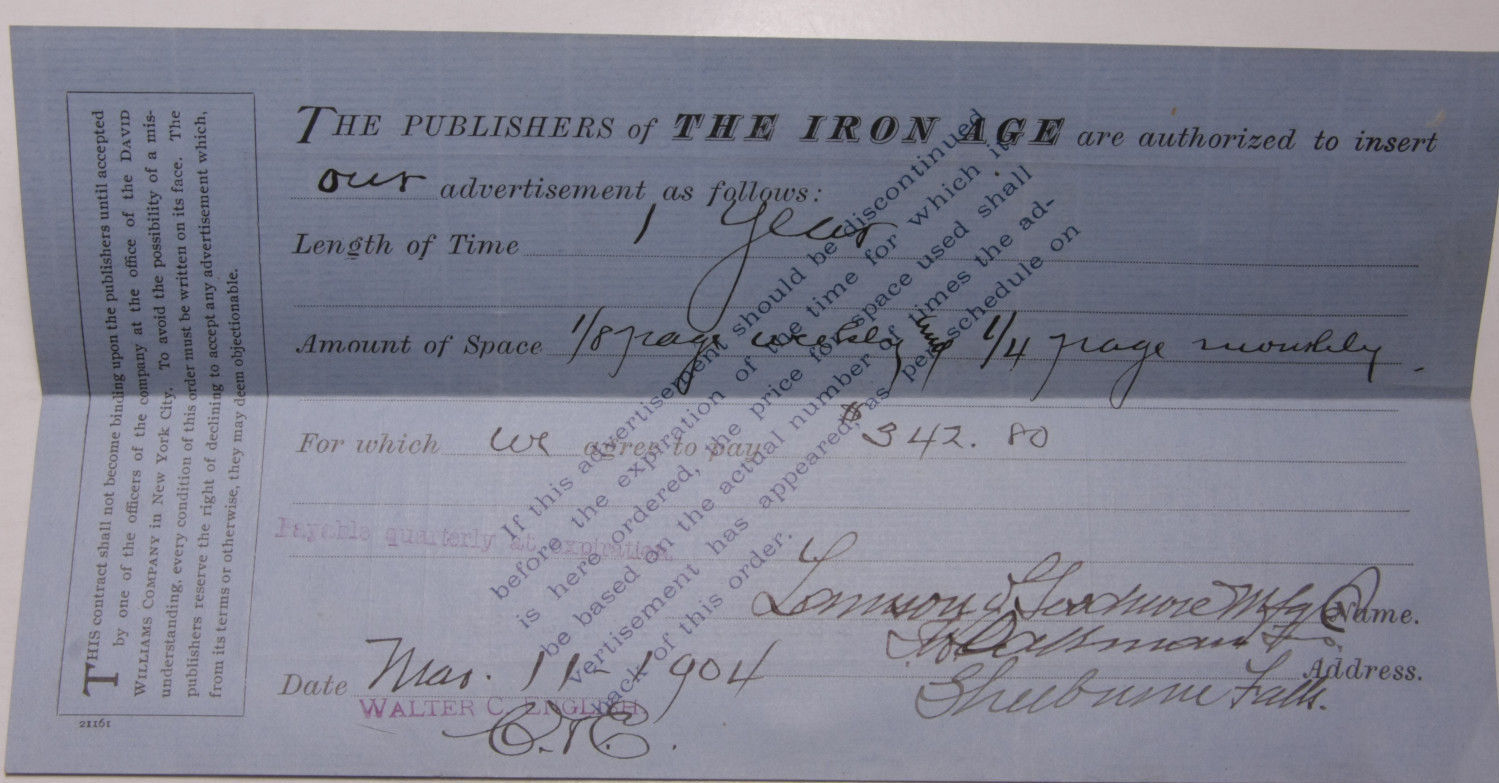 THIS contract shall not become binding upon the publishers until accepted
by one of the officers of the company at the office of the DAVID
WILLIAMS COMPANY in New York City. To avoid the possibility of a mis-
understanding, every condition of this order must be written on its face. The
publishers reserve the right of declining to accept any advertisement which,
from its terms or otherwise, they may deem objectionable.
21161
THE PUBLISHERS of THE IRON AGE are authorized to insert
our advertisement as follows:
Length of Time 1 Year
Amount of Space 1/8 page weekly and 1/4 page monthly.
For which we agree to pay $342.80
Payable quarterly at expiration
If this advertisement should be discontinued
before the expiration of the time for which it
is here ordered, the price for space used shall
be based on the actual number of times the ad-
vertisement has appeared, as per schedule on
back of this order.
Lamson & Goodnow Mfg Co Name.
Address.
Shelburne Falls.
Date Mar. 11 - 1904
WALTER C. ENGLISH